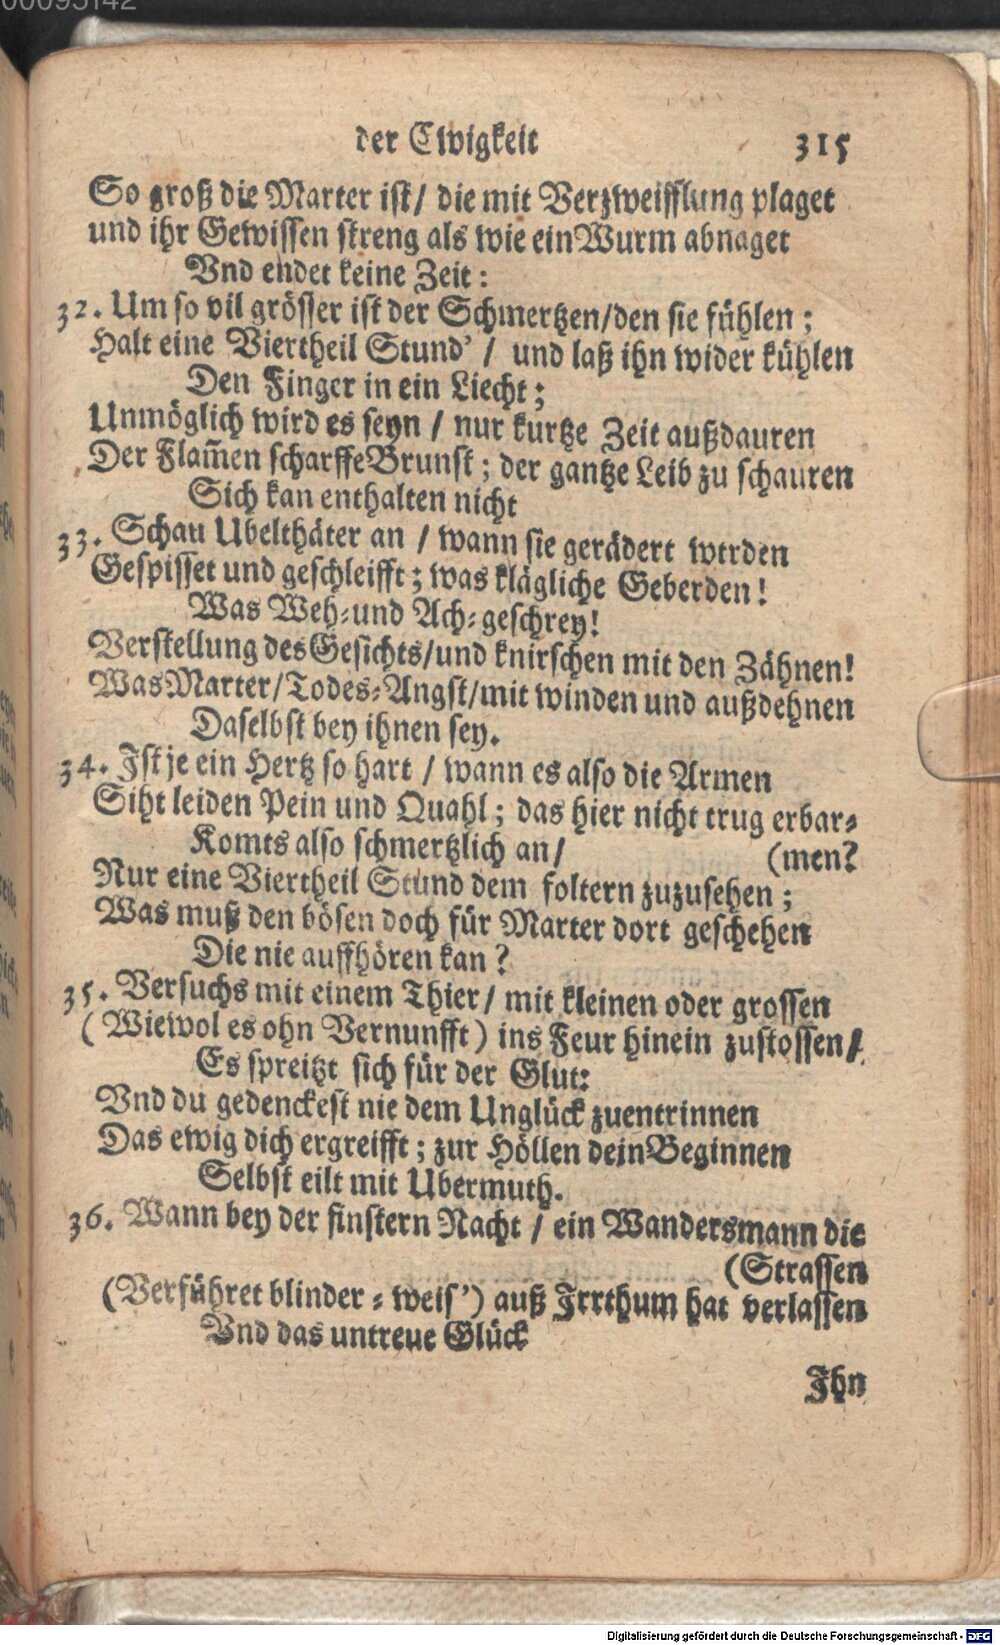 00095142
der Ewigkeit 315
So groß die Marter ist/ die mit Verzweifflung plaget
und ihr Gewissen streng als wie ein Wurm abnaget
Vnd endet keine Zeit:
32. Um so vil grösser ist der Schmertzen/den sie fühlen;
Halt eine Viertheil Stund' / und laß ihn wider kühlen
Den Finger in ein Liecht;
Unmöglich wird es seyn / nur kurtze Zeit außdauren
Der Flam̃en scharffe Brunst; der gantze Leib zu schauren
Sich kan enthalten nicht
33. Schau Ubelthäter an / wann sie gerädert werden
Gespisset und geschleifft; was klägliche Geberden!
Was Weh-und Ach-geschrey!
Verstellung des Gesichts/und knirschen mit den Zähnen!
Was Marter/Todes-Angst/mit winden und außdehnen
Daselbst bey ihnen sey.
34. Ist je ein Hertz so hart / wann es also die Armen
Siht leiden Pein und Quahl; das hier nicht trug erbar-
Komts also schmertzlich an/ (men?
Nur eine Viertheil Stund dem foltern zuzusehen;
Was muß den bösen doch für Marter dort geschehen
Die nie auffhören kan?
35. Versuchs mit einem Thier/ mit kleinen oder grossen
(Wiewol es ohn Vernunfft) ins Feur hinein zustossen/
Es spreitzt sich für der Glut:
Vnd du gedenckest nie dem Unglück zuentrinnen
Das ewig dich ergreifft; zur Höllen dein Beginnen
Selbst eilt mit Ubermuth.
36. Wann bey der finstern Nacht / ein Wandersmann die
(Strassen
(Verführet blinder-weis') auß Irrthum hat verlassen
Vnd das untreue Glück
Ihn
Digitalisierung gefördert durch die Deutsche Forschungsgemeinschaft - DFG